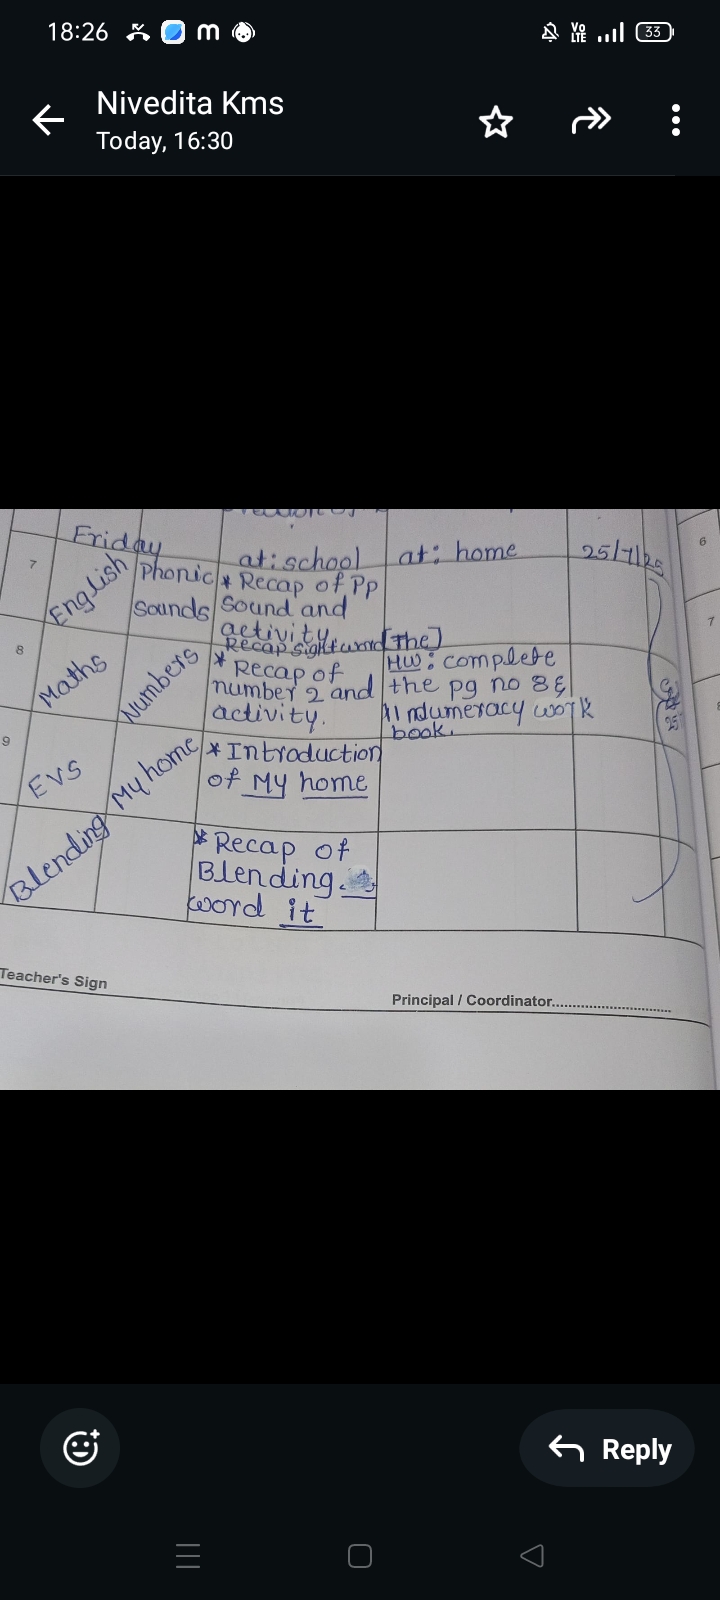 18:26
Vo LTE
33
Nivedita Kms
Today, 16:30
Friday
at: school
at: home
25/7/25
6
7
English
Phonic
Sounds
* Recap of Pp
Sound and
activity.
Recap sight word [The]
7
8
Maths
Numbers
* Recap of
number 2 and
activity.
HW: complete
the pg no 8 &
11 ndumeracy work
book.
9
EVS
My home
* Introduction
of My home
Blending
* Recap of
Blending.
word it
Teacher's Sign
Principal / Coordinator..............................
Reply